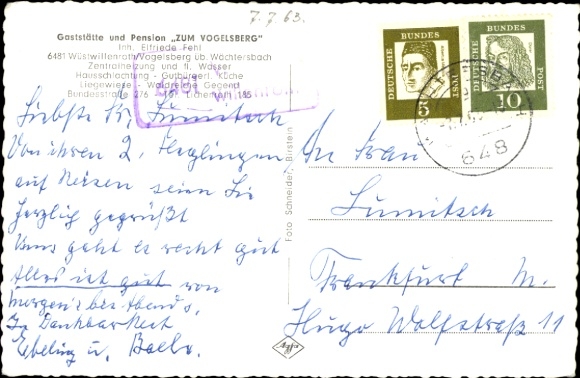 7.7.63.
Gaststätte und Pension „ZUM VOGELSBERG"
Inh. Elfriede Fehl
6481 Wüstwillenroth/Vogelsberg üb. Wächtersbach
Zentralheizung und fl. Wasser
Hausschlachtung - Gutbürgerl. Küche
Liegewiese - Waldreiche Gegend
Bundesstraße 276 - Tel. Lichenroth 185
DEUTSCHE BUNDESPOST
5
DEUTSCHE BUNDESPOST
10
648
Liebste Fr. Lumitsch
Von ihren 2
auf Reisen seien Sie
herzlig gegrüßt
Uns geht es recht gut
Alles ist gut von
morgens bis Abends,
In Dankbarkeit
Ebeling u.
Foto Schneider, Birstein
An Frau
Lumitsch
Frankfurt M.
Hugo Wolfstraß 11
Agfa